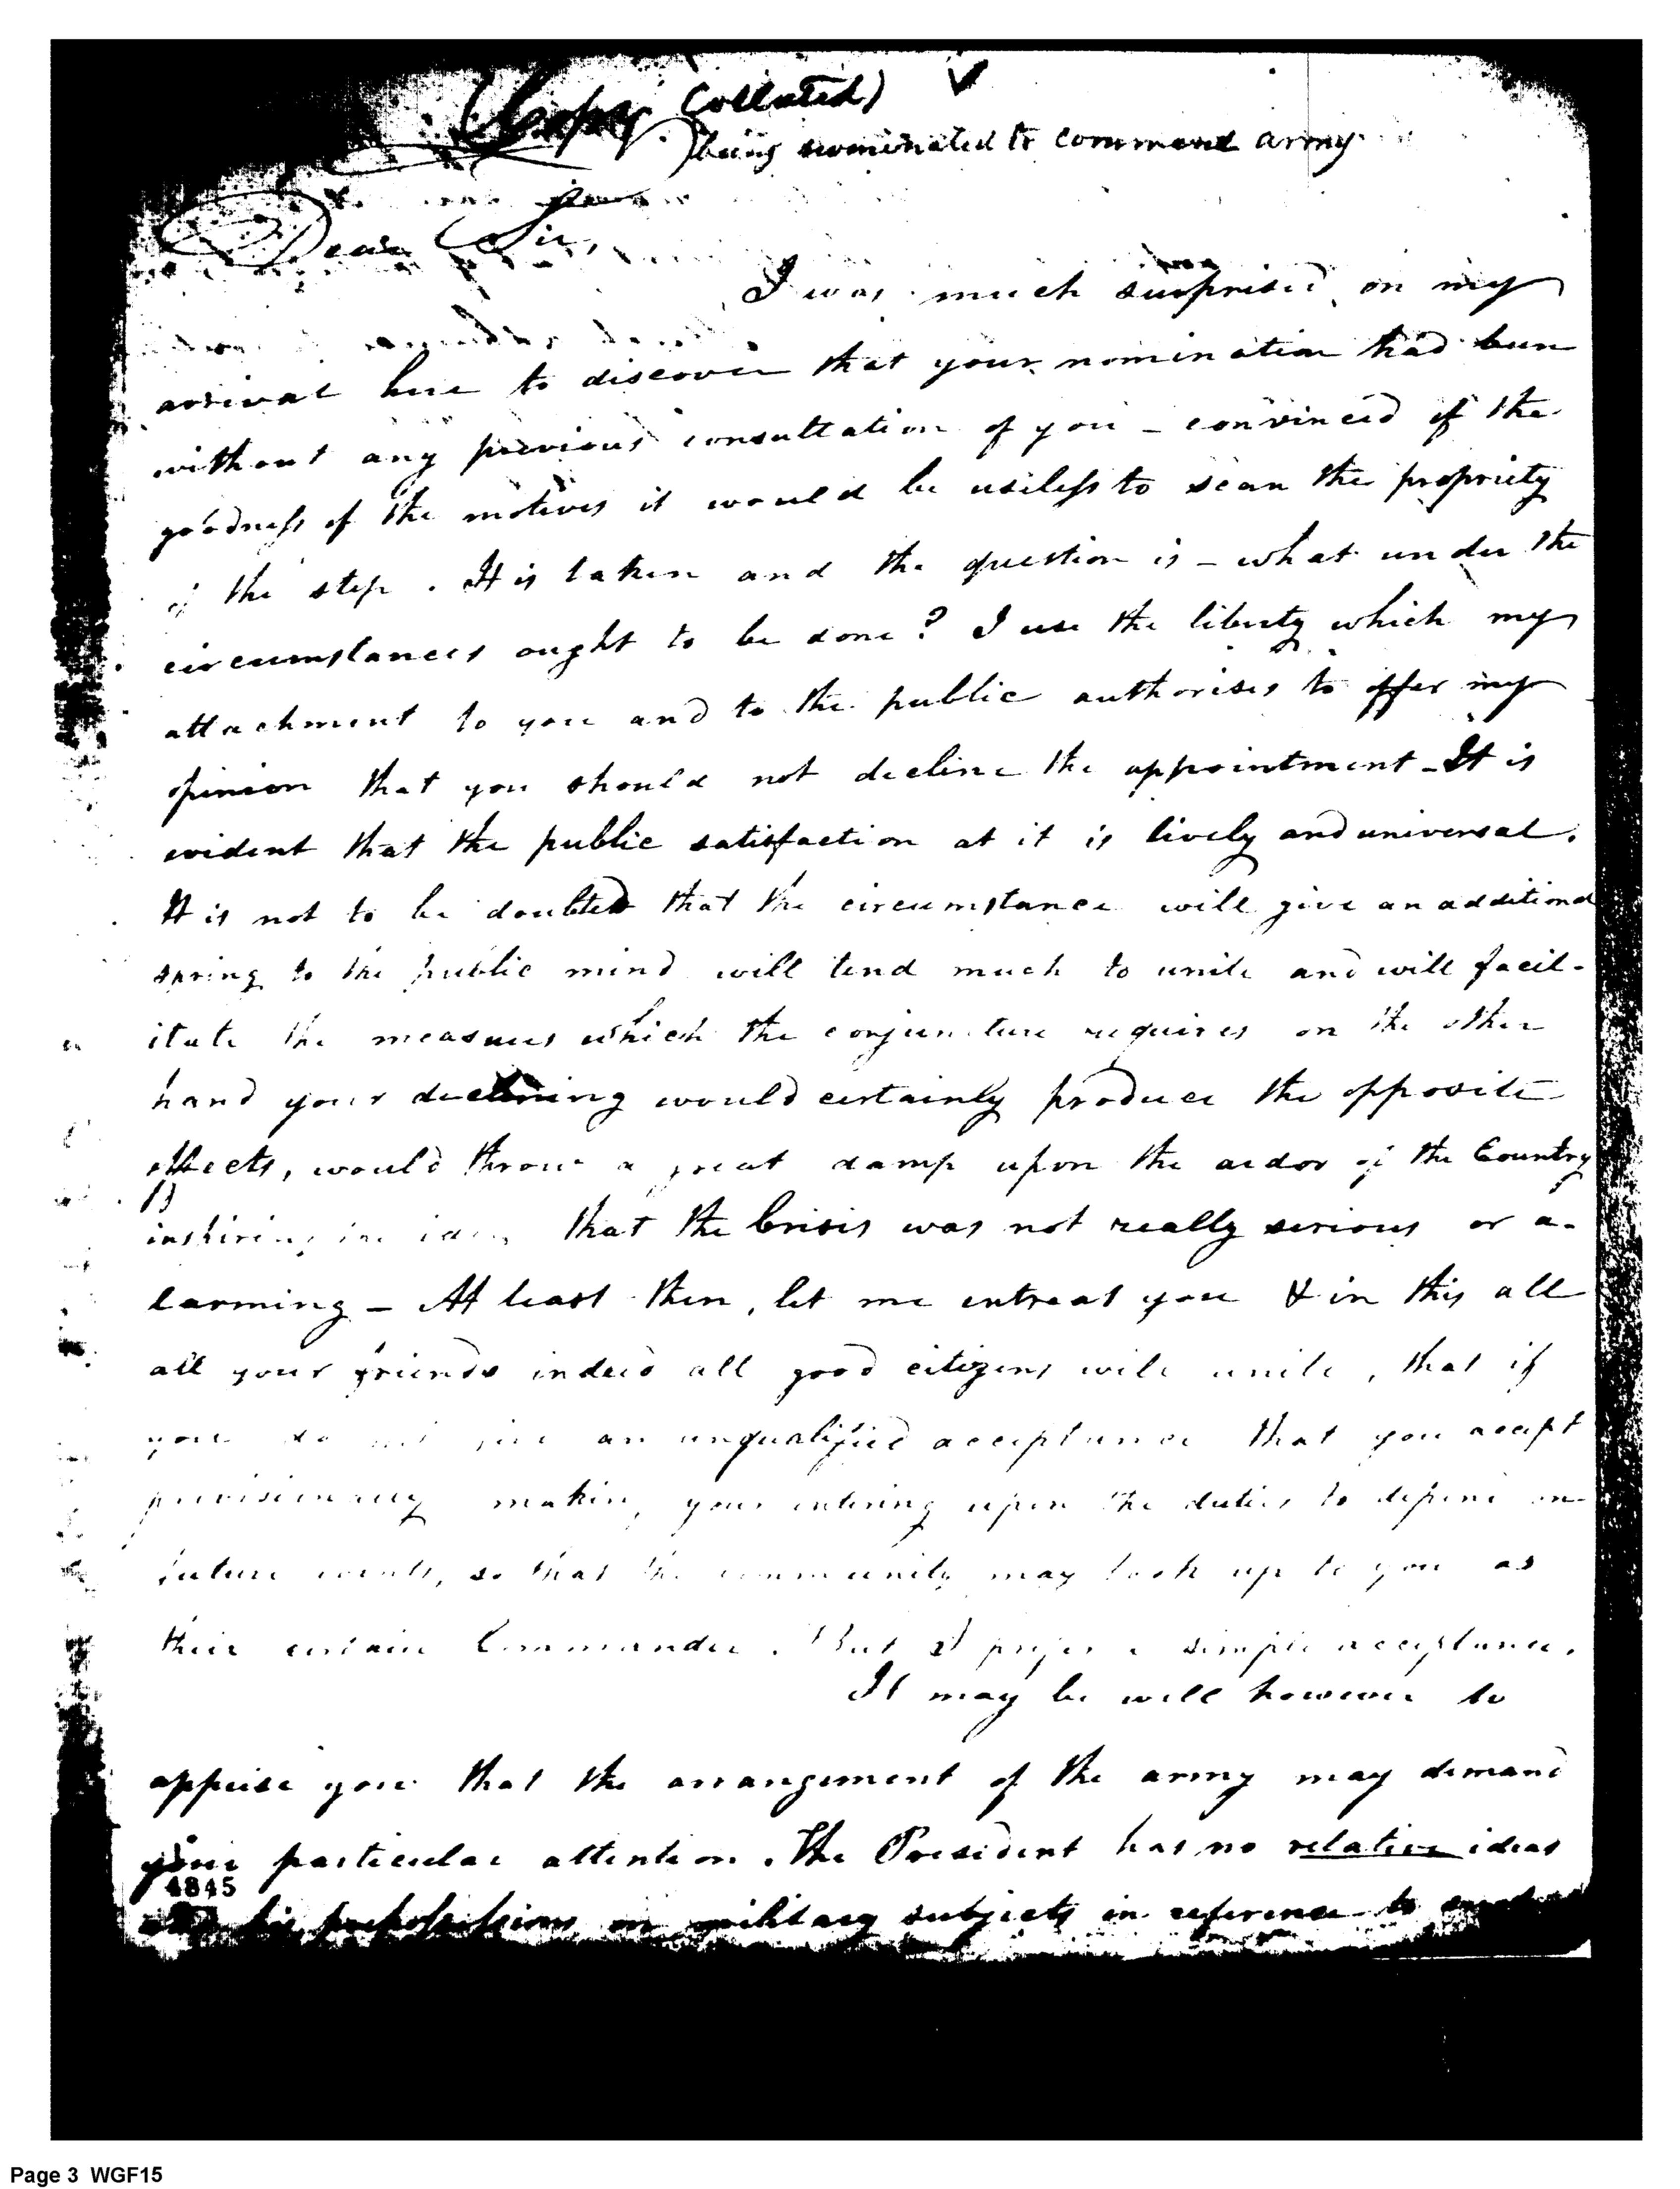 (Copy Collated)
being nominated to command army
Dear Sir,
I was much surprised on my
arrival here to discover that your nomination had been
without any previous consultation of you – convinced of the
goodness of the motives it would be useless to scan the propriety
of the step. It is taken and the question is – what under the
circumstances ought to be done? I use the liberty which my
attachment to you and to the public authorises to offer my
opinion that you should not decline the appointment – It is
evident that the public satisfaction at it is lively and universal.
It is not to be doubted that the circumstance will give an additional
spring to the public mind will tend much to unite and will facil-
itate the measures which the conjuncture requires on the other
hand your declining would certainly produce the opposite
effects, would throw a great damp upon the ardor of the Country
inspiring the idea that the Crisis was not really serious or a-
larming – At least then, let me entreat you & in this all
all your friends indeed all good citizens will unite, that if
you do not give an unqualified acceptance that you accept
provisionally making your entering upon the duties to depend on
future events, so that the community may look up to you as
their certain Commander. But I prefer a simple acceptance.
It may be well however to
apprise you that the arrangement of the army may demand
your particular attention. The President has no relative ideas
4845
his prepossessions on military subjects in reference to
Page 3 WGF15